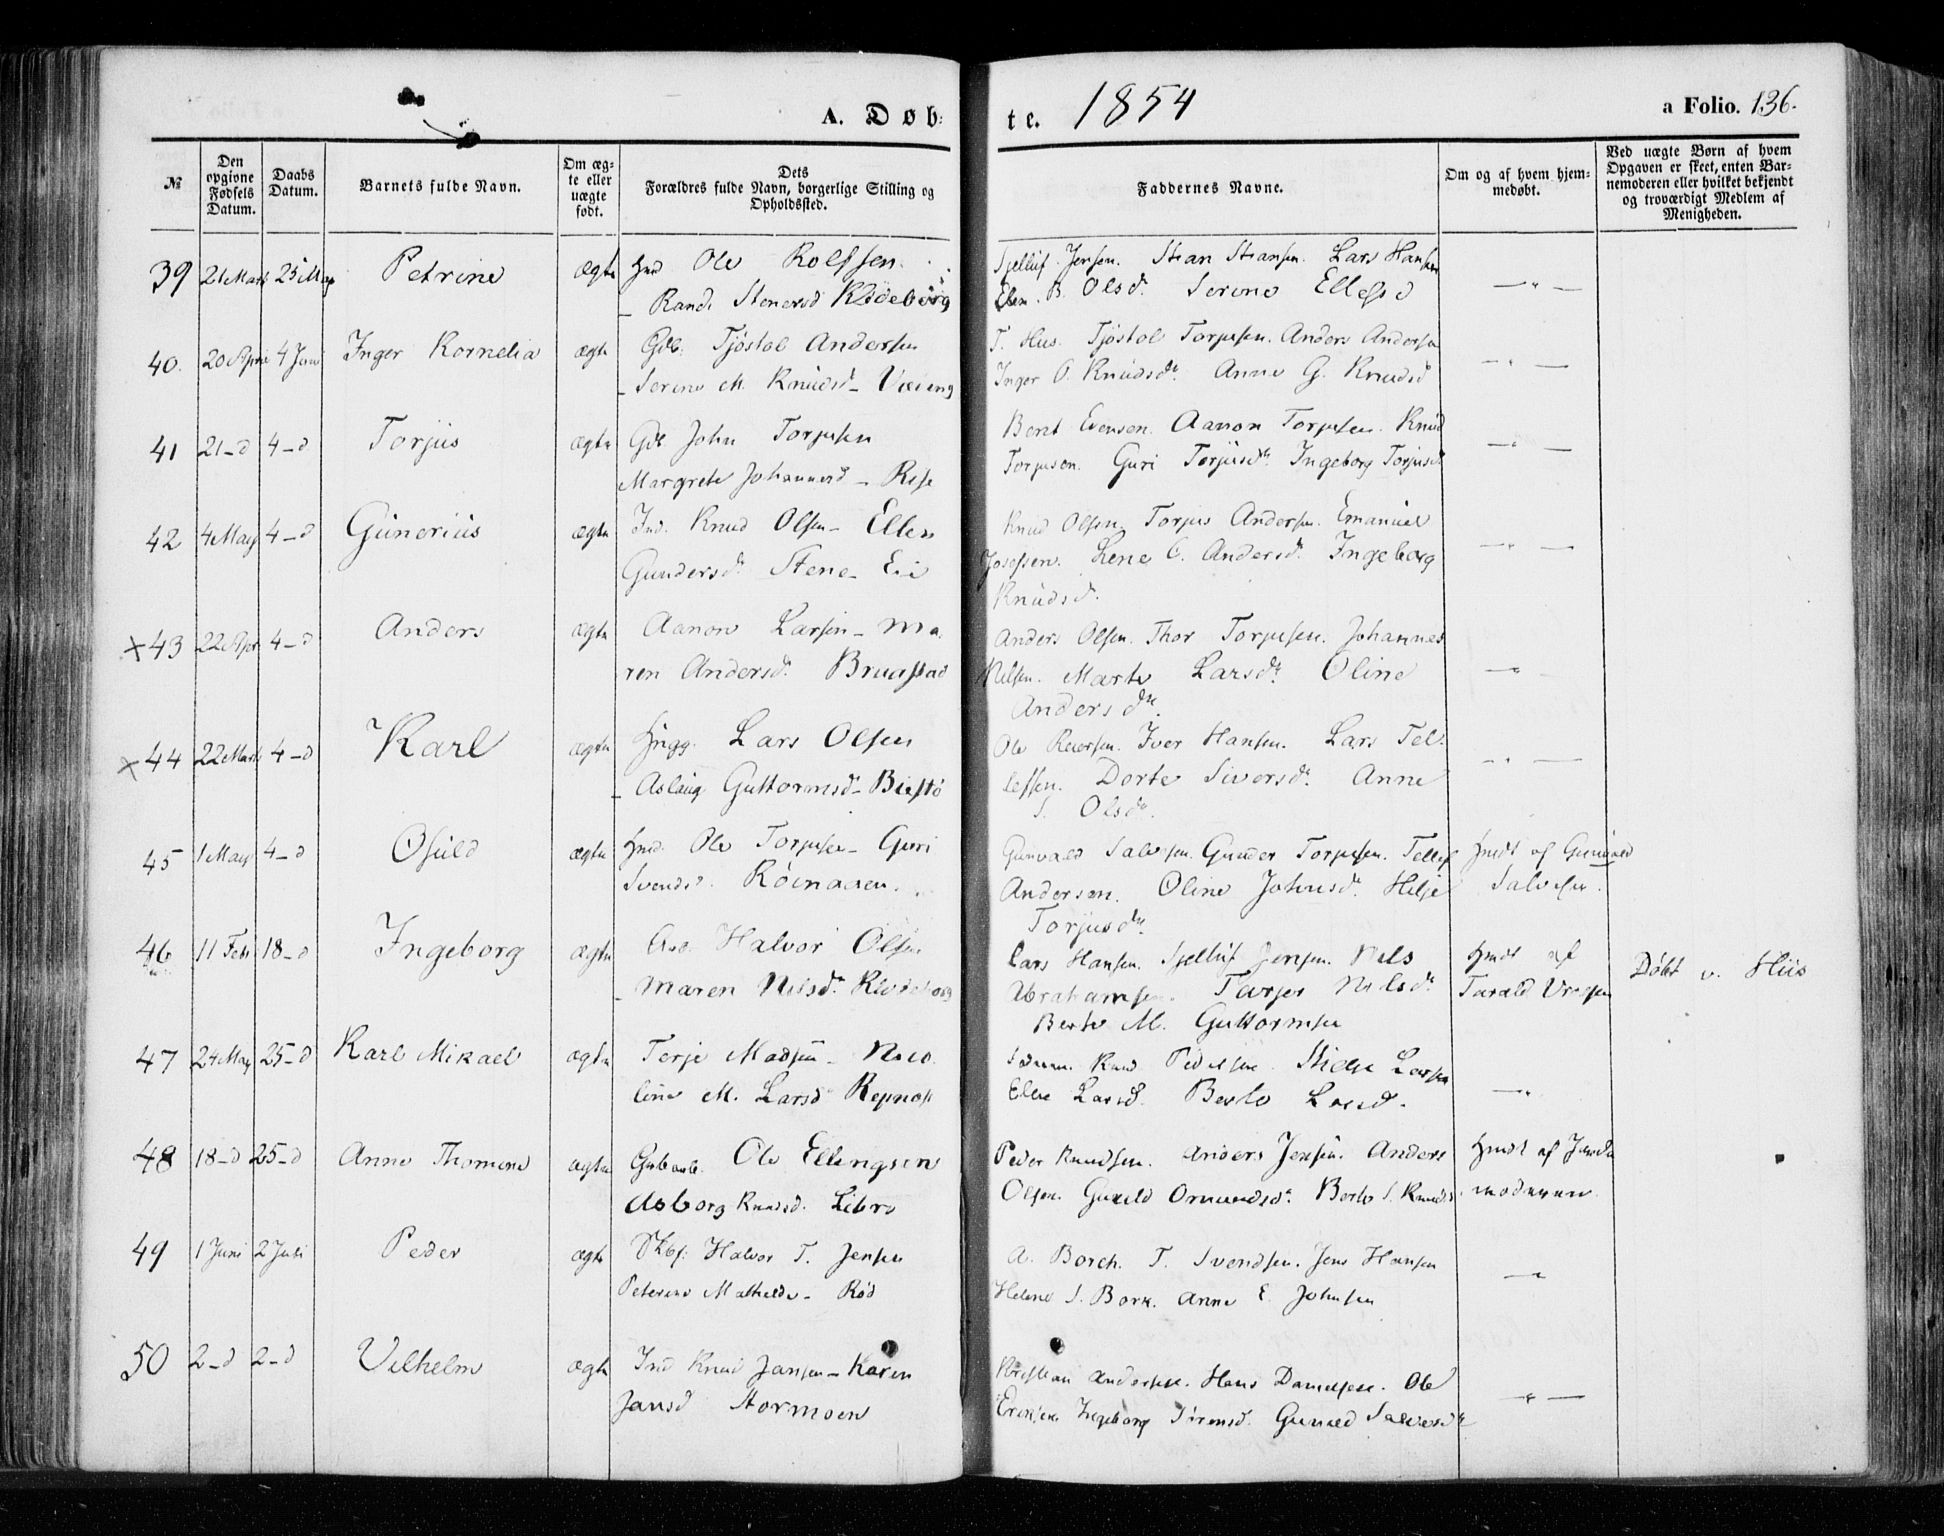 A. Døb-
te. 1854
a Folio. 136.
№
Den opgivne Fødsels Datum.
Daabs Datum.
Barnets fulde Navn.
Om ægte eller uægte født.
Dets Forældres fulde Navn, borgerlige Stilling og Opholdssted.
Faddernes Navne.
Om og af hvem hjemmedøbt.
Ved uægte Børn af hvem Opgaven er skeet, enten Barnemoderen eller hvilket bekjendt og troværdigt Medlem af Menigheden.
39 21 Marts 25 May Petrine ægte Hmd Ole Rolfssen. Jensen. Stian Stiansen. Lars Hansen
Randi Stenersd Klødeborg Elen. B. Olsd. Serine Ellefsd
40. 20 April 4 Juni Inger Kornelia ægte Gdb. Tjöstol Andersen T. Hus. Tjöstol Torjusen. Anders Andersen
Serine M. Knudsd - Vieeng Inger O. Knudsdr. Anne G. Knudsd
41 21-d 4-d Torjus ægte Gdb John Torjusen Berot Evensen. Aanon Torjusen. Knud
Margrete Johannesd - Rise Torjusen. Guri Torjusdr. Ingeborg Torjusd
42 4 May 4-d Gunerius ægte Ind. Knud Olsen - Ellen Knud Olsen. Torjus Andersen. Emanuel
Gundersdr Stene - Eie Josefsen. Lene C. Andersdr. Ingeborg
Knudsd.
x 43 22 Apr 4-d Anders ægte Aanon Larsen - Ma Anders Olsen. Thor Torjusen. Johannes
ren Andersdr. Bruastad Nilsen. Marte Larsdr. Oline
Andersdr.
x 44 22 Marts 4-d Karl ægte Lars Olsen Ole Reiersen. Iver Hansen. Lars Tel-
Aslaug Guttormsdr - Biestö lefsen. Dorte Siversdr. Anne
S. Olsdr.
45 1 May 4-d Osuld ægte Hmd. Ole Torjusen - Guri Gunvald Salvesen. Gunder Torjusen. Tellef Hmdt af Gunvald
Svendsd. Röinaasen. Andersen. Oline Johnsdr. Helje Salvesen.
Torjusdr.
46 11 Feb 18-d Ingeborg ægte Halvor Olsen Lars Hansen. Jensen. Nils Hmdt af
Maren Nilsdr. Klødeborg Abrahamsen. Nilsdr. Tarald Døbt v. Hus
Berte M. Guttormsen
47 24 May 25-d Karl Mikael ægte Terje Madsen - Nico Knud Pedersen. Larsen
line M. Larsd Elen Larsd. Berte Larsd.
48 18-d 25-d Anne Thomine ægte Ole Ellingsen Peder Knudsen. Anders Jensen. Anders Hmdt af Jorde
Asborg Knudsd. Libro Olsen. Gunild Omundsdr. Berte S. Knudsd. moderen.
49 1 Juni 2 Juli Peder ægte Halvor T. Jensen A. Borch. T. Svendsen. Jens Hansen
Peterine Mathilde - Röd Helene S. Bork. Anne E. Johnsen
50 2-d 2-d Vilhelm ægte Ind Knud Jansen - Karen Kristian Andersen. Hans Danielsen. Ole
Jansd Stormoen Eriksen Ingeborg Sörensd. Gunild Salvesdr